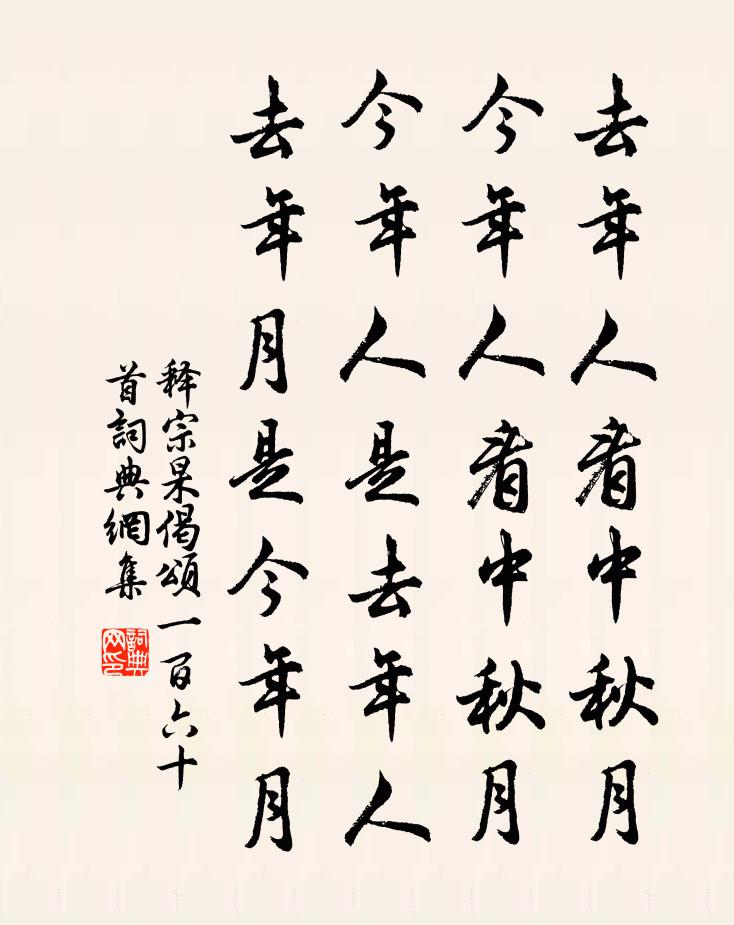 去年人看中秋月
今年人看中秋月
今年人是去年人
去年月是今年月
释宗杲偈頌一百六十
首詞典網集
詞典
网印